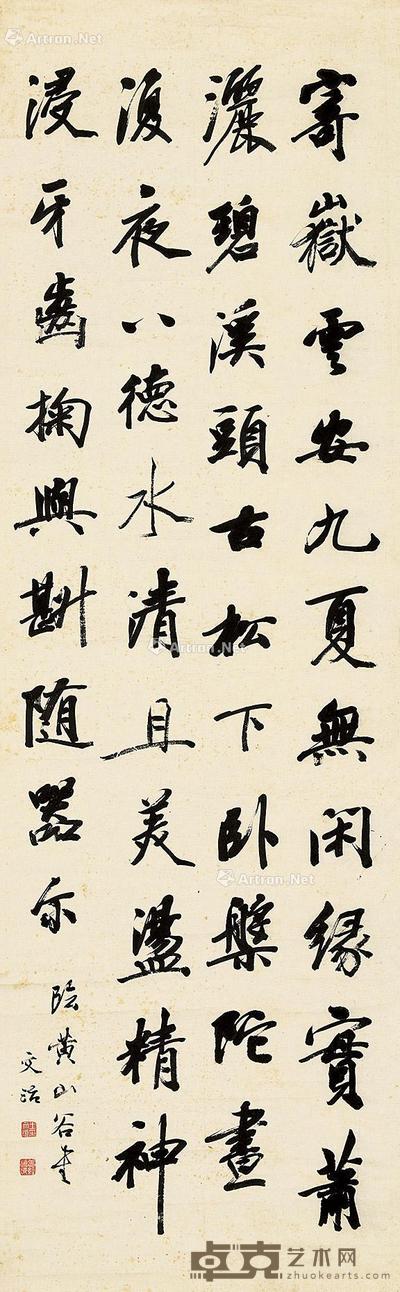 寄嶽雲安九夏無閑緣實蕭
灑碧溪頭古松下臥槃陀晝
復夜八德水清且美盪精神
浸牙齒掬與斟随器尔
臨黄山谷書
文治
Artron.Net
Artron.Net
Artron.Net
Artron.Net
Artron.Net
卓克艺术网
zhuokearts.com